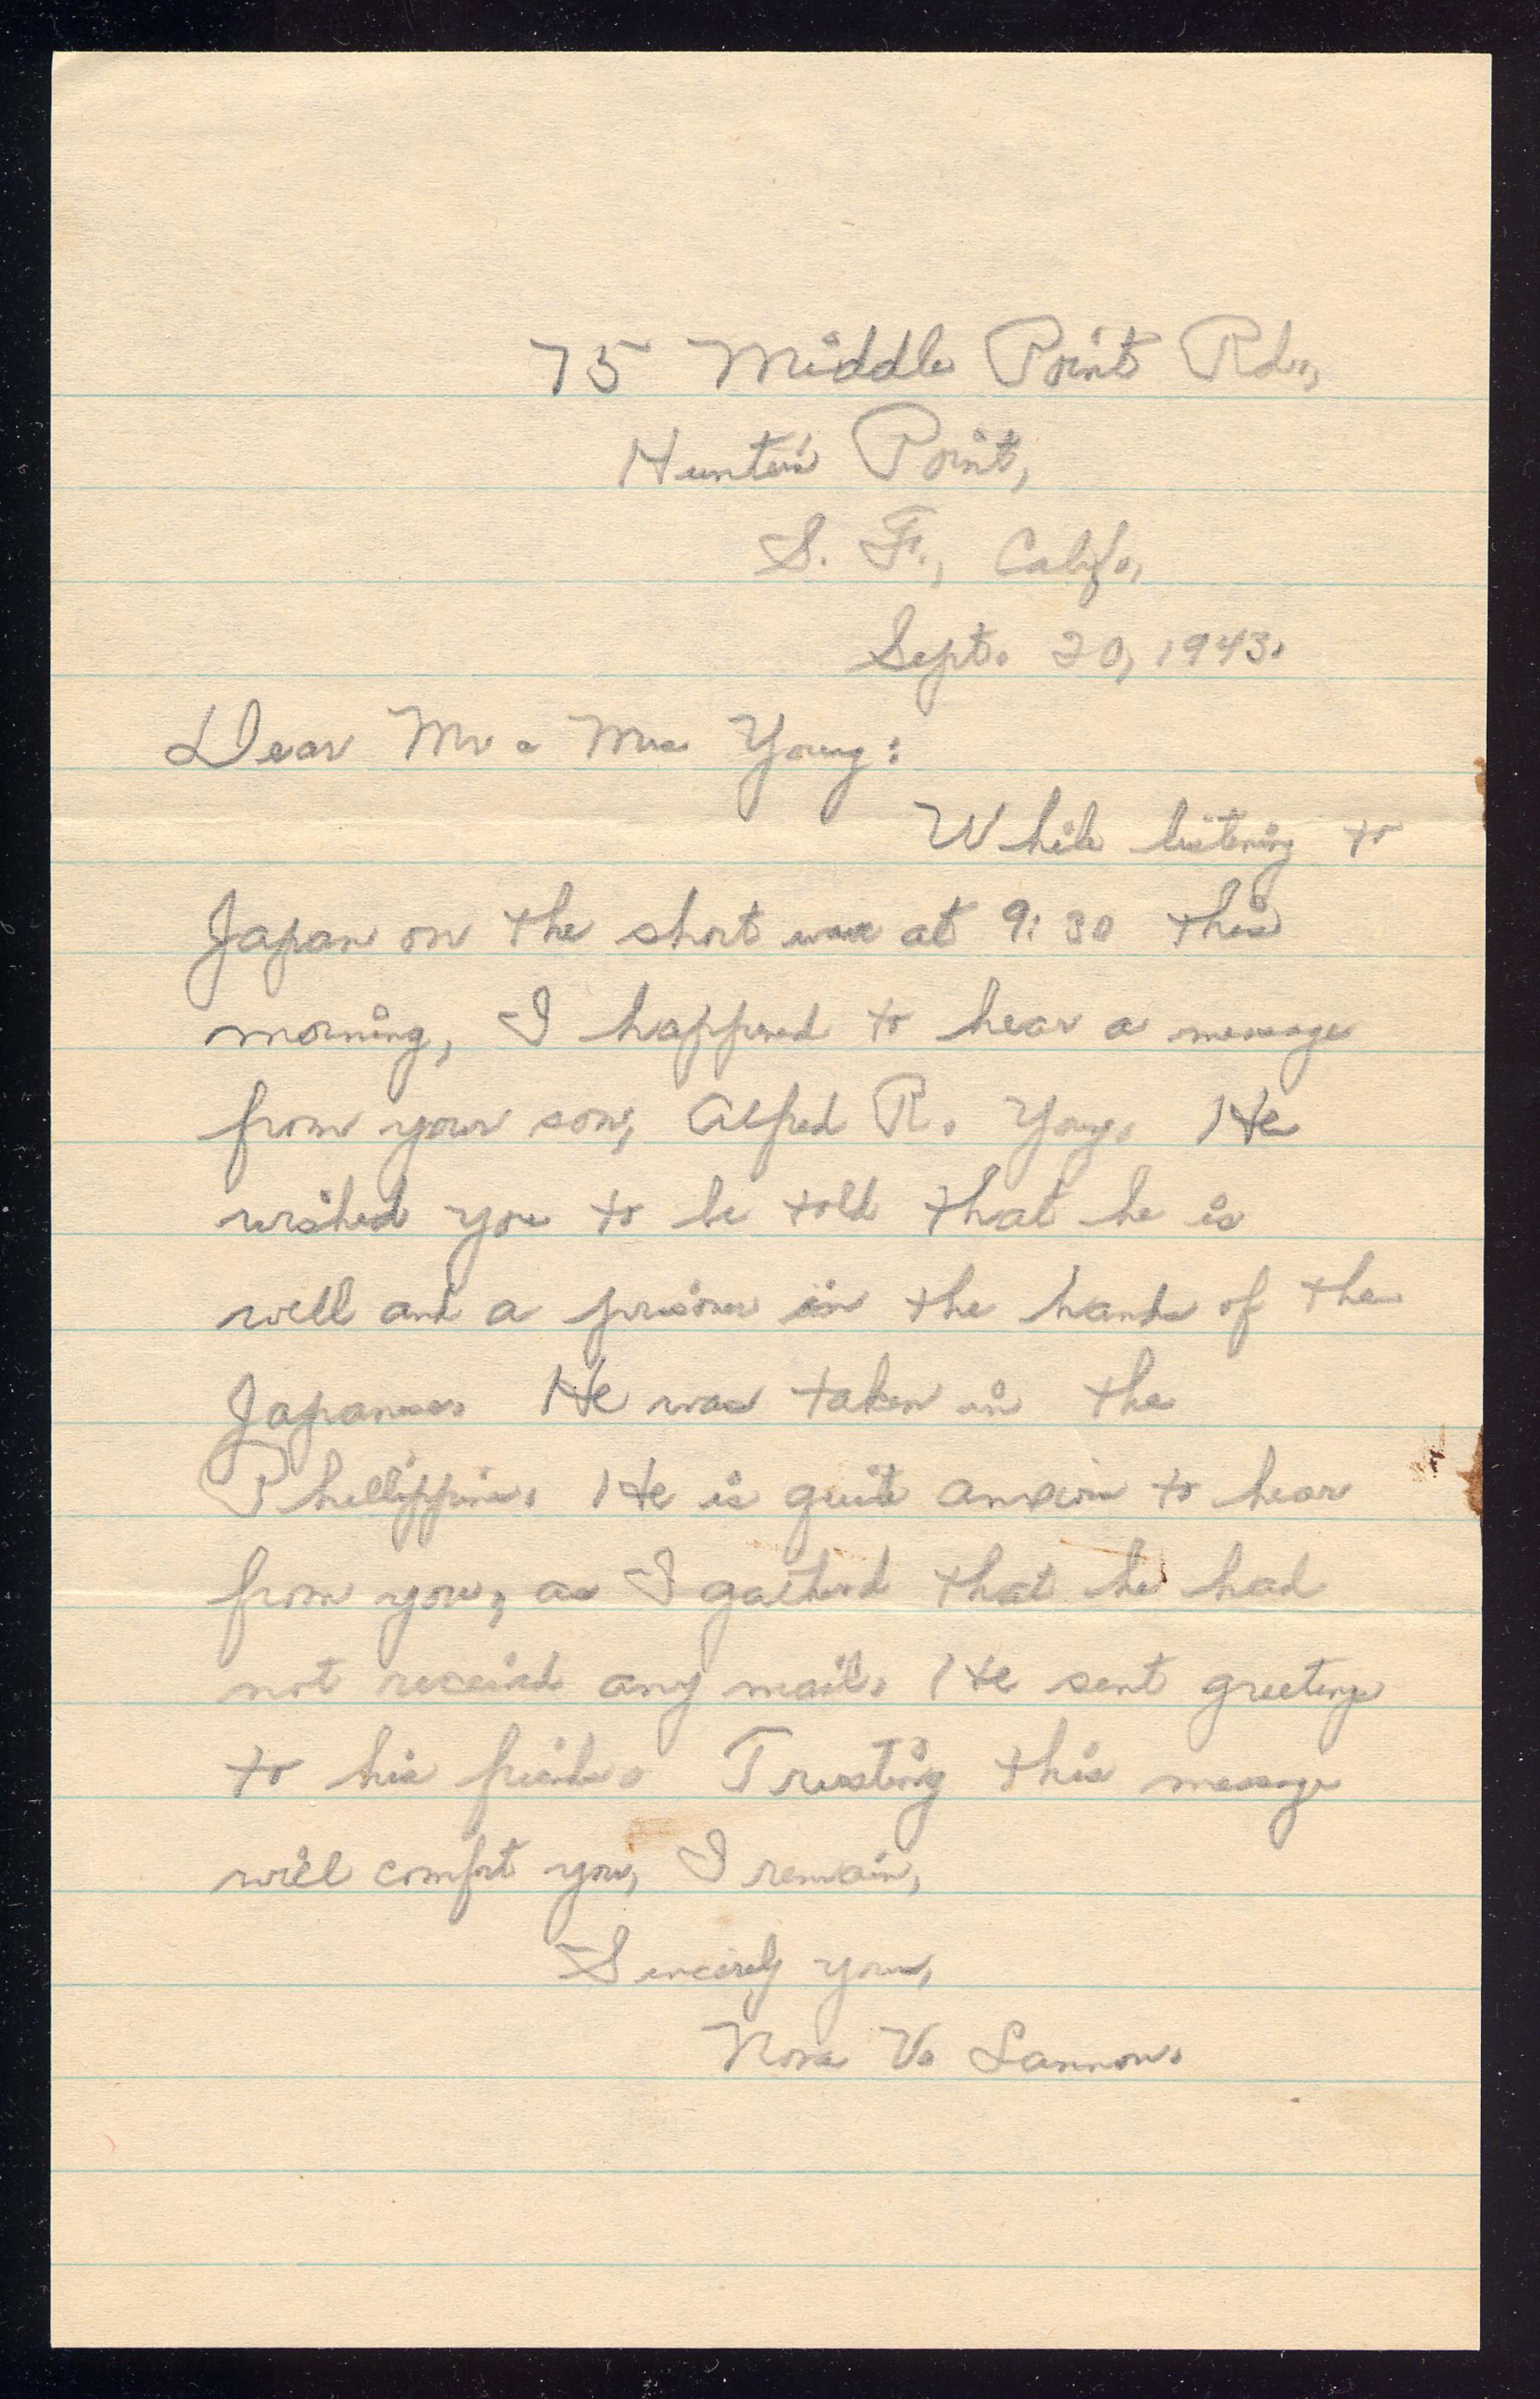 75 Middle Point Rd.,
Hunter's Point,
S. F., Calif.,
Sept. 20, 1943.
Dear Mr & Mrs Young:
While listening to
Japan on the short wave at 9:30 this
morning, I happened to hear a message
from your son, Alfred R. Young. He
wished you to be told that he is
well and a prisoner in the hands of the
Japanese. He was taken in the
Phellippines. He is quite anxious to hear
from you, as I gathered that he had
not received any mail. He sent greetings
to his friends. Trusting this message
will comfort you, I remain,
Sincerely yours,
Nora V. Lannon.